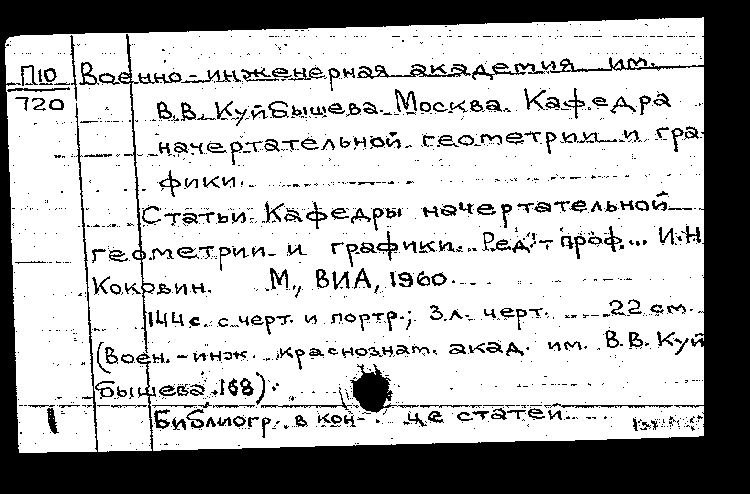 П10 Военно-инженерная академия им.
720 В.В. Куйбышева. Москва. Кафедра
начертательной геометрии и гра-
фики.
Статьи Кафедры начертательной
геометрии и графики. Ред. проф... И.Н.
Коковин. М., ВИА, 1960.
144с. с черт. и портр.; 3л. черт. 22 см.
(Воен.-инж. краснознам. акад. им. В.В. Куй
бышева. 168).
Библиогр. в кон- це статей.